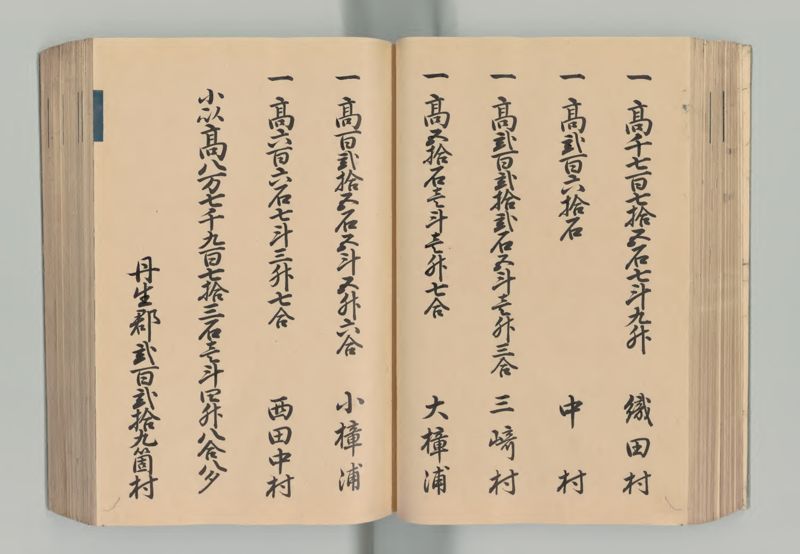 一高千七百七拾五石七斗九升 織田村
一高弐百六拾石 中村
一高弐百弐拾弐石五斗壱升三合 三﨑村
一高五拾石壱斗壱升七合 大樟浦
一高百弐拾五石五斗五升六合 小樟浦
一高六百六石七斗三升七合 西田中村
小以高八万七千九百七拾三石壱斗四升八合八夕
丹生郡弐百弐拾九箇村